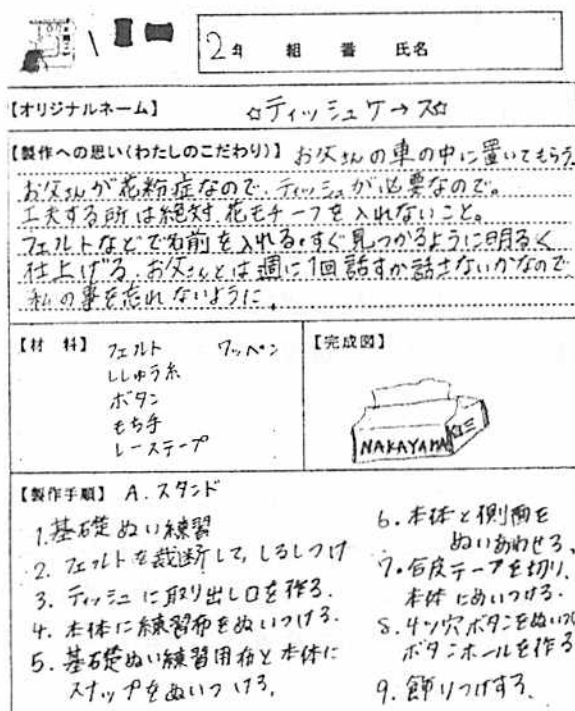 2年 組 番 氏名
【オリジナルネーム】 ☆ティッシュケース☆
【製作への思い(わたしのこだわり)】 お父さんの車の中に置いてもらう。
お父さんが花粉症なので、ティッシュが必要なので。
工夫する所は絶対、花モチーフを入れないこと。
フェルトなどで名前を入れる。すぐ見つかるように明るく
仕上げる。お父さんとは週に1回話すか話さないかなので
私の事を忘れないように。
【材 料】 フェルト ワッペン
ししゅう糸
ボタン
もち手
レーステープ
【完成図】
NAKAYAMA
【製作手順】 A.スタンド
1.基礎ぬい練習
2.フェルトを裁断して,しるしつけ
3.ティッシュに取り出し口を作る.
4.本体に練習布をぬいつける.
5.基礎ぬい練習用布と本体に
スナップをぬいつける.
6.本体と側面を
ぬいあわせる、
7.合皮テープを切り、
本体にぬいつける.
8.4ツ穴ボタンをぬいつ
ボタンホールを作る
9.飾りつけする、